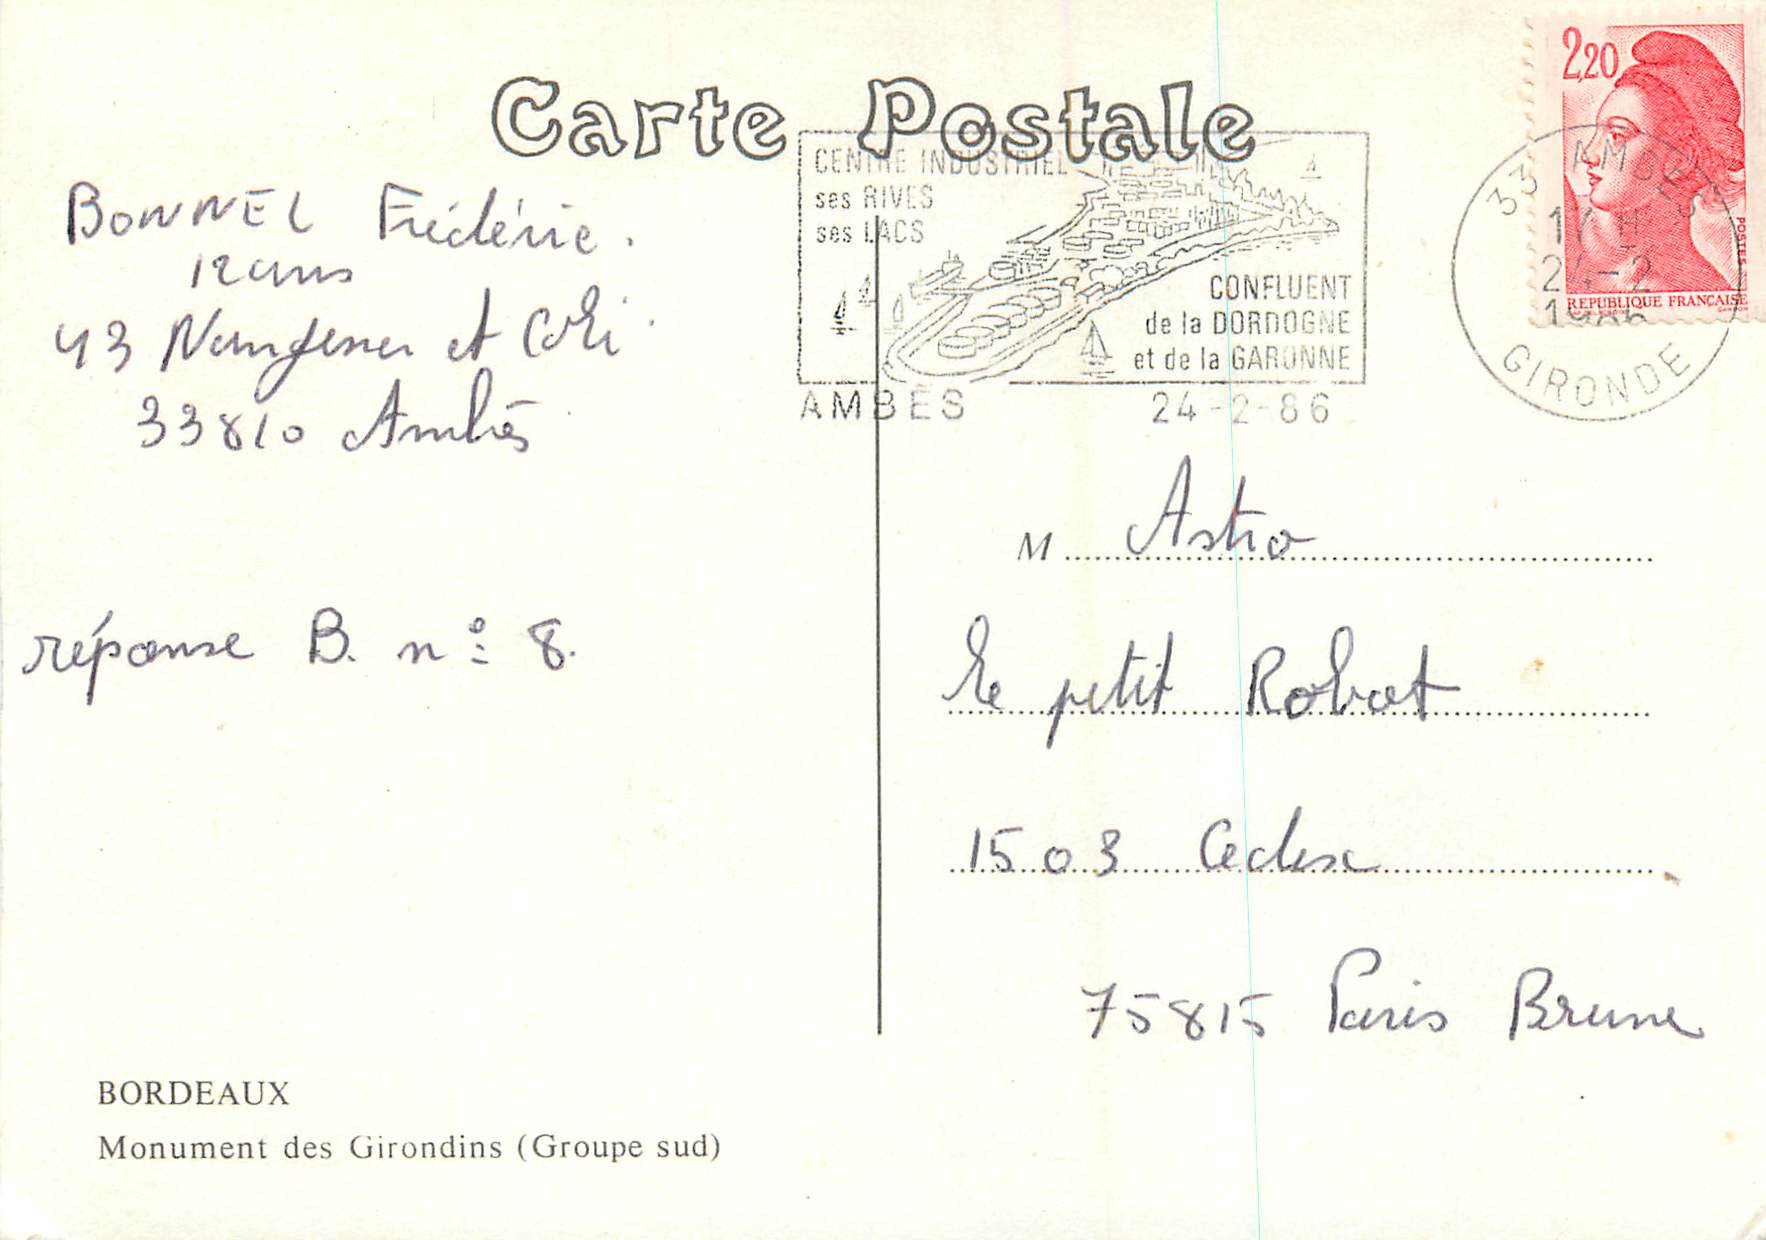 Carte Postale
CENTRE INDUSTRIEL
ses RIVES
ses LACS
CONFLUENT
de la DORDOGNE
et de la GARONNE
AMBÈS 24-2-86
2,20
POSTES
REPUBLIQUE FRANÇAISE
33 AMBES
24-2
1986
GIRONDE
BONNEL Frédéric.
12 ans
43 Nungesser et Coli
33810 Ambès
réponse B. n° 8.
M Astro
le petit Robot
1503 Cedex
75815 Paris Brune
BORDEAUX
Monument des Girondins (Groupe sud)